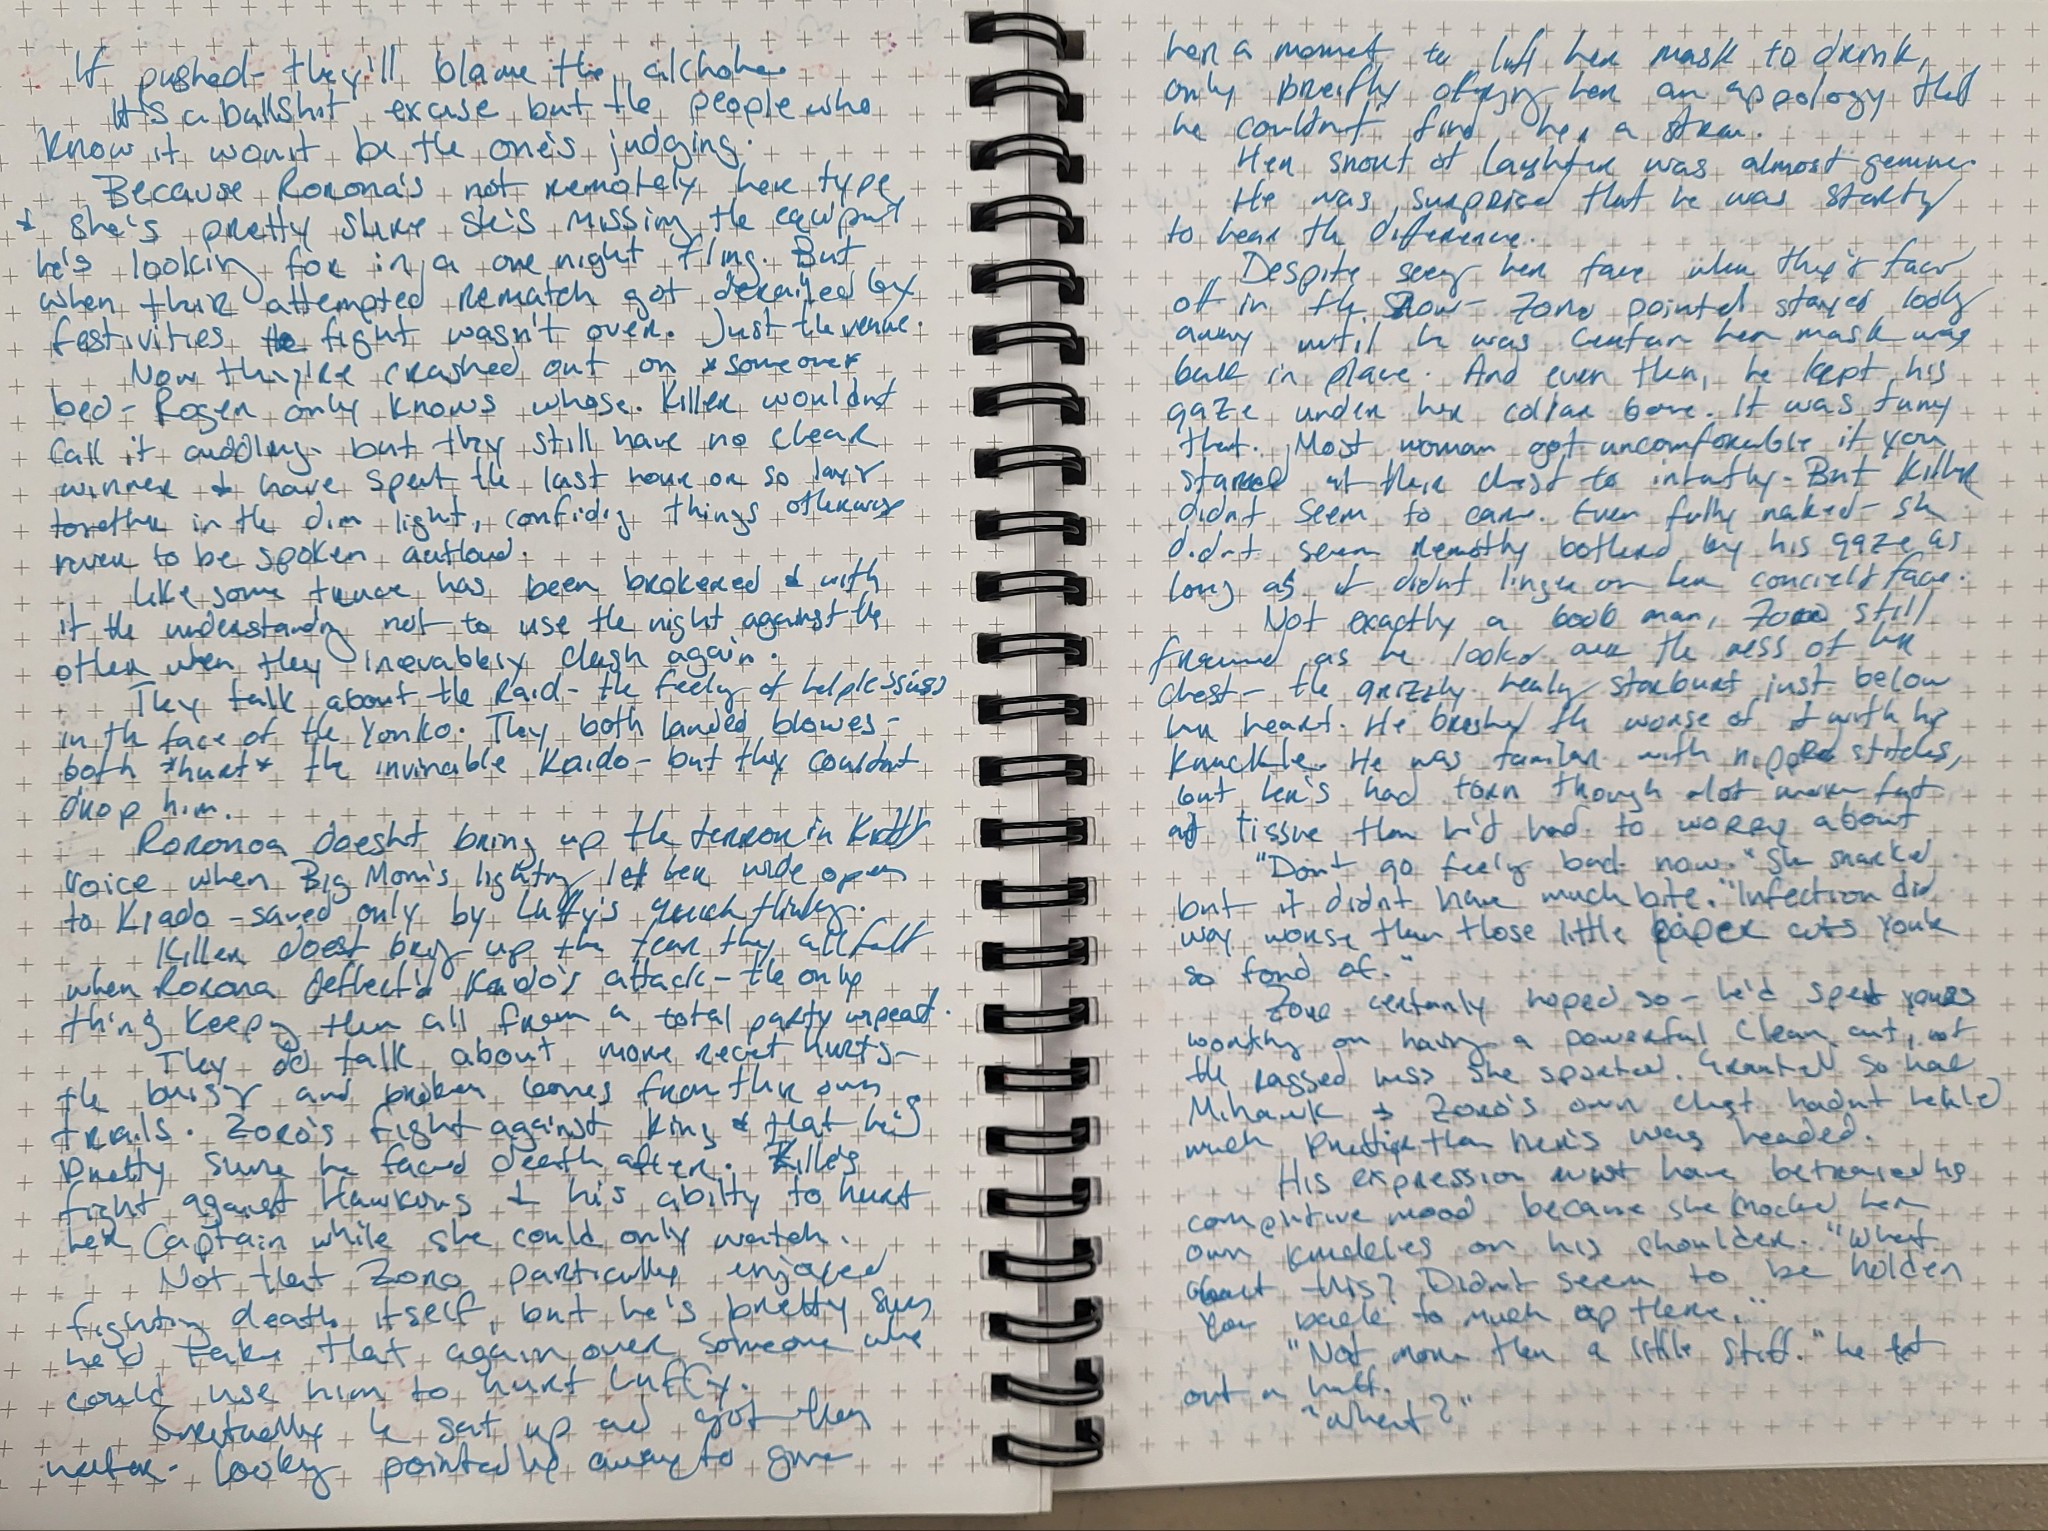 If pushed- they'll blame the alchohol.
It's a bullshit excuse but the people who
know it won't be the one's judging.
Because Rorona's not remotely her type
& she's pretty shure she's missing the equipmt
he's looking for in a one night fling. But
when their attempted rematch got derailed by
festivities the fight wasn't over. Just the venue.
Now they're crashed out on *someone*
bed- Roger only knows whose. Killer wouldnt
call it cuddling- but they still have no clear
winner & have spent the last hour or so layir
together in the dim light, confidig things otherwise
never to be spoken outloud.
Like some truce has been brokered & with
it the understandng not to use the night against the
other when they inevably clash again.
They talk about the Raid- the feely of helplessness
in the face of the Yonko. They both landed blowes-
both *hurt* the invinable Kaido- but they couldnt
drop him.
Roronoa doesnt bring up the terror in Kidd's
voice when Big Mom's lightng left her wide open
to Kiado - saved only by Luffy's quick thinkg.
Killer doesnt brig up the fear they all felt
when Rorona deflect'd Kado's attack - the only
thing keepg them all from a total party wipeout.
They do talk about more recet hurts-
the buisr and broken bones from their own
trails. Zoro's fight against King & that he's
pretty sure he faced death after. Killers
fight against Hawkins & his abilty to hurt
her Captain while she could only watch.
Not that Zoro particully enjoyed
fightng death itself, but he's pretty sure
he'd take that again over someone who
could use him to hurt Luffy.
Eventually he sat up and got them
water- looky pointedly away to give
her a momet to lift her mask to drink,
only breifly offeryg her an appology that
he couldn't find her a straw.
Her snort of laughter was almost genuine.
He was surprised that he was startg
to hear the difference.
Despite seeg her face when they'd facd
off in the Snow- Zoro pointed stayed looky
away until he was certan her mask was
back in place. And even then, he kept his
gaze under her collar bone. It was funny
that. Most woman got uncomforable if you
stared at their chest to intently. But Killer
didnt seem to care. Even fully naked- she
didnt seem remotly bothered by his gaze as
long as it didnt linger on her conceild face.
Not exactly a boob man, Zoro still
frowned as he lookd over the mess of her
chest- the grizzly healy starburst just below
her heart. He brushed the worse of it with his
knuckle. He was familar with ripped stitches,
but her's had torn though alot more fat
& tissue than he'd had to worry about
"Don't go feely bad now." She snarked
but it didnt have much bite. "Infection did
way worse than those little paper cuts your
so fond of."
Zoro certanly hoped so - he'd spent years
workng on havig a powerful clean cut, not
the ragged mess she sported. Granted so had
Mihawk & Zoro's own chest hadn't heald
much prettier than her's was headed.
His expression must have betraied his
compitive mood because she knocked her
own knuckles on his shoulder. "What
about this? Didn't seem to be holden
you back to much up there."
"Not more then a little stiff." he let
out a huff.
"What?"